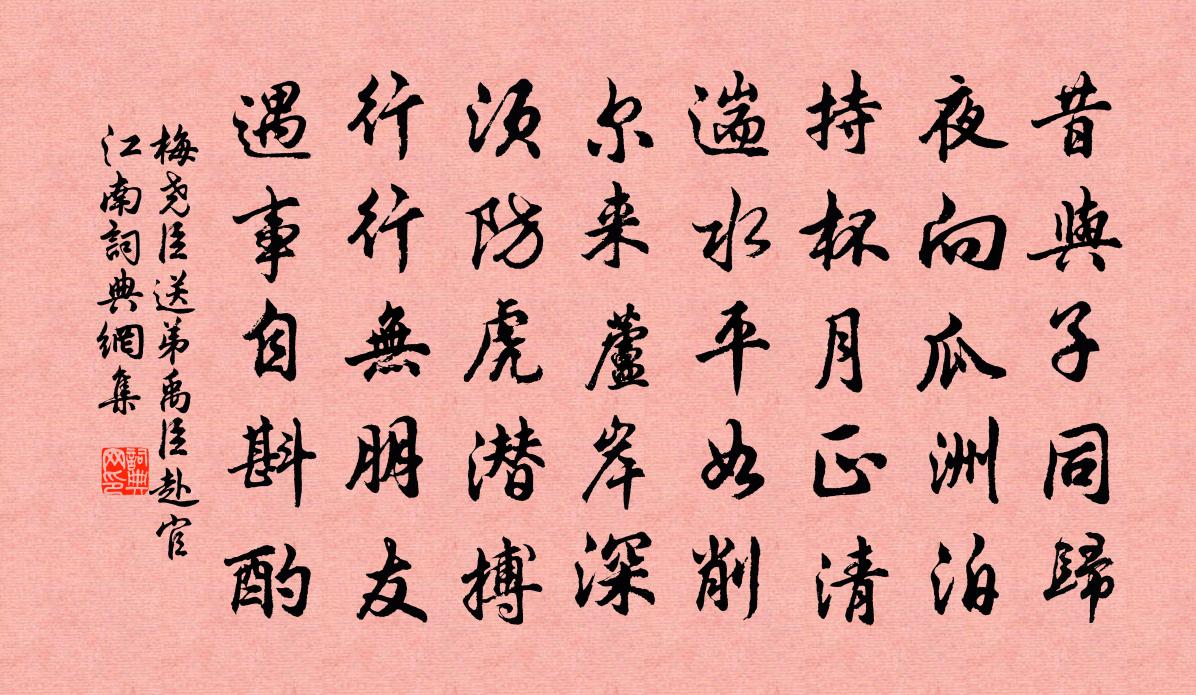 昔與子同歸
夜向瓜洲泊
持杯月正清
湍水平如削
尔来蘆岸深
须防虎潜搏
行行無朋友
遇事自斟酌
梅尧臣送弟禹臣赴官
江南詞典網集
詞典网印